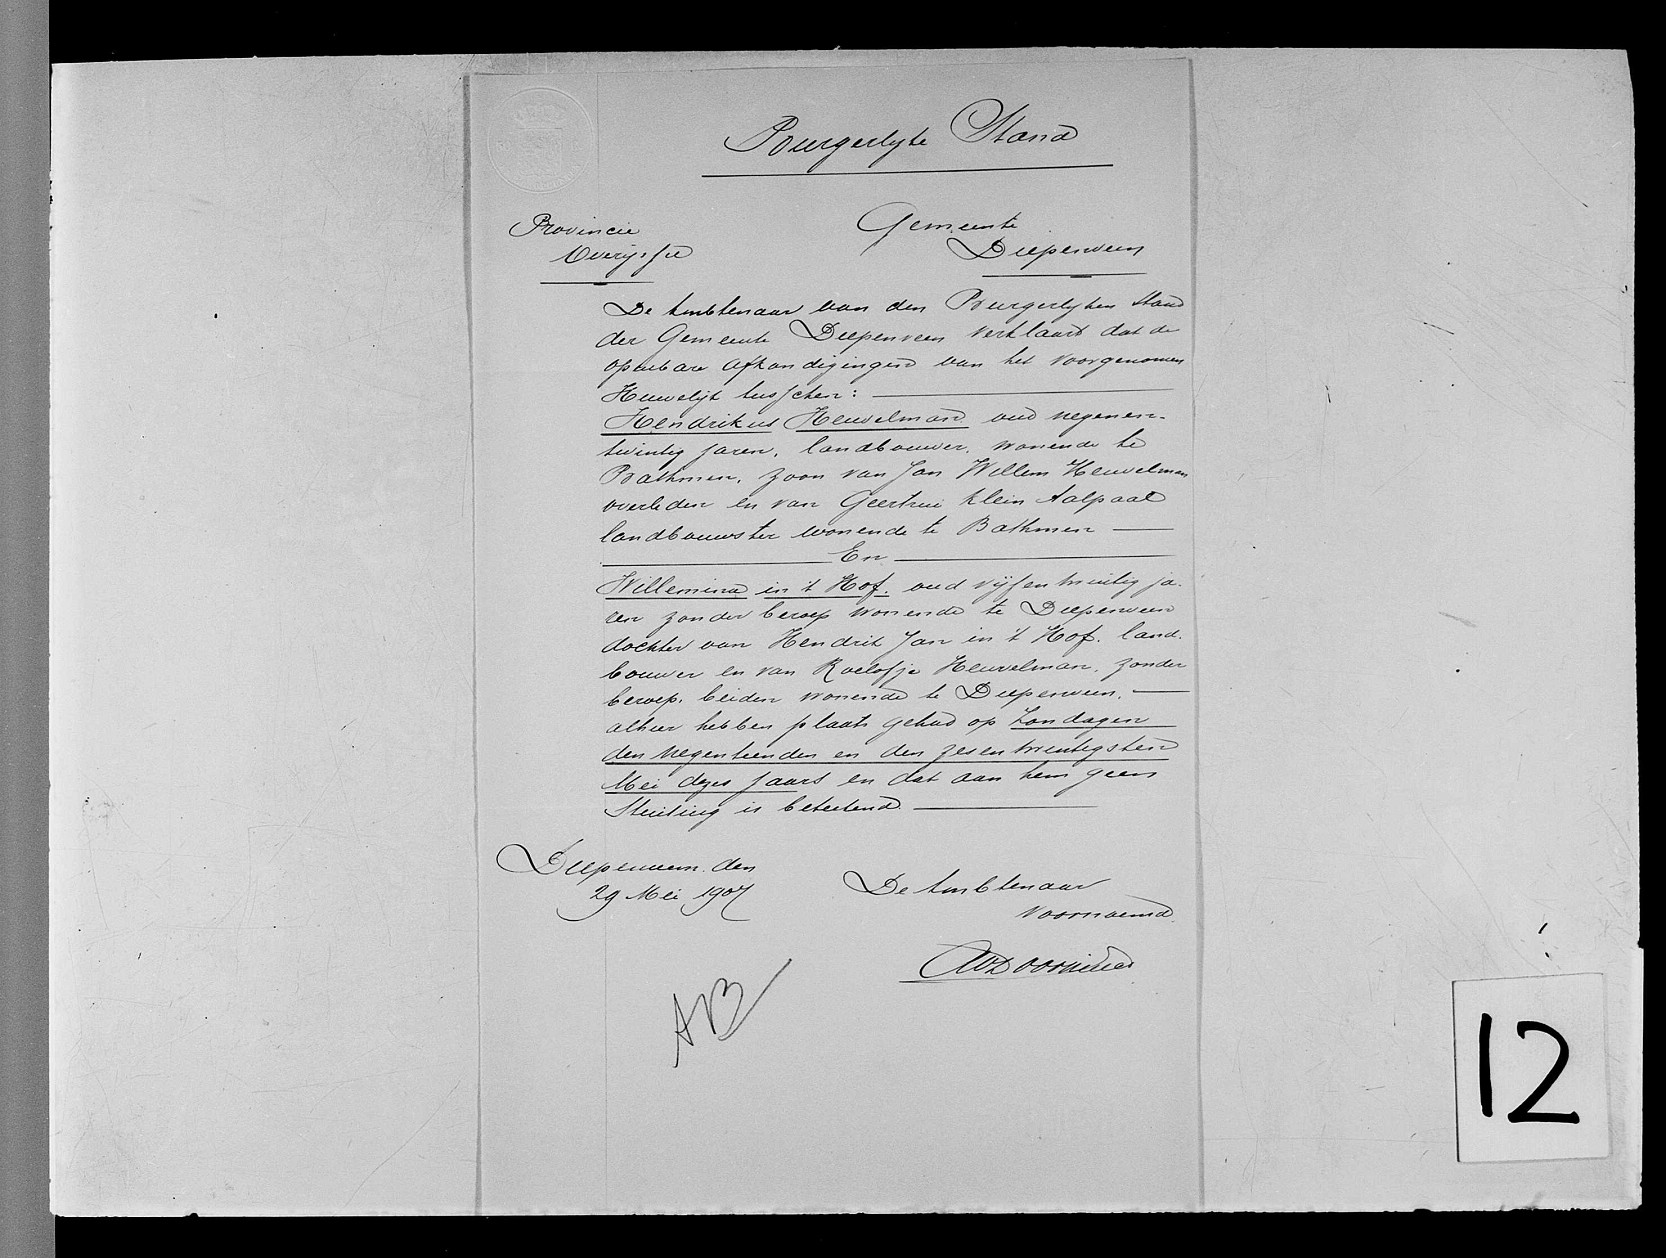 Burgerlyke Stand
Provincie
Overijssel
Gemeente
Diepenveen
De Ambtenaar van den Burgerlyken Stand
der Gemeente Diepenveen verklaart dat de
openbare afkondigingen van het voorgenomen
Huwelijk tusschen:
Hendrikus Heuvelman oud negenen-
twintig jaren, landbouwer, wonende te
Bathmen, zoon van Jan Willem Heuvelman
overleden en van Geertrui Klein Aalpaal
landbouwster wonende te Bathmen
En
Willemina in 't Hof. oud vijfentwintig ja-
ren zonder beroep wonende te Diepenveen
dochter van Hendrik Jan in 't Hof. land-
bouwer en van Roelofje Heuvelman, zonder
beroep. beiden wonende te Diepenveen,
alhier hebben plaats gehad op Zondagen
den negentienden en den zesentwintigsten
Mei dezes jaars en dat aan hem geen
Stuiting is beteekend
Diepenveen. den
29 Mei 1907
De Ambtenaar
voornoemd.
AB
12